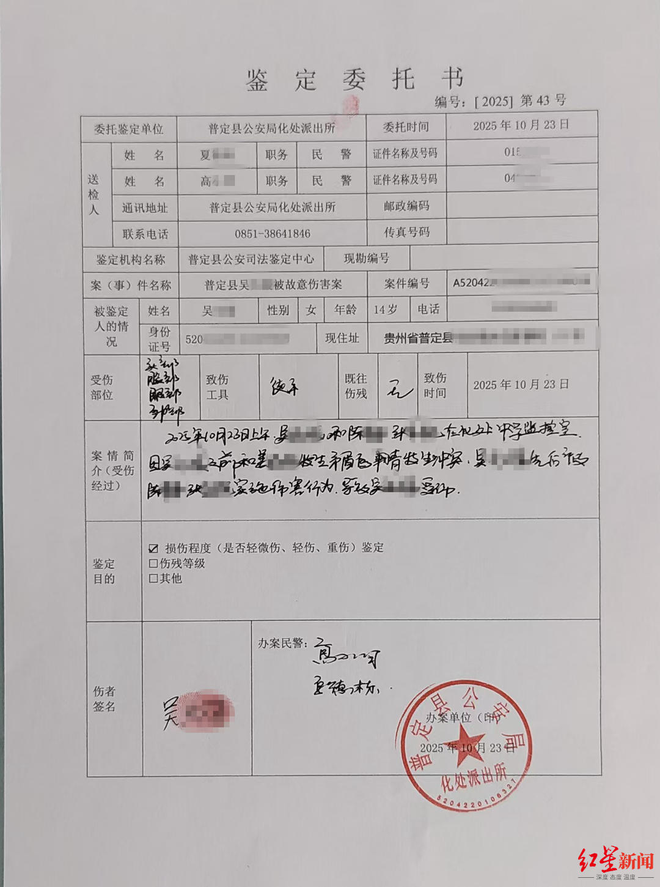 鉴定委托书
编号：[2025] 第 43 号
委托鉴定单位 普定县公安局化处派出所 委托时间 2025 年 10 月 23 日
送检人 姓名 夏 职务 民警 证件名称及号码 015
姓名 高 职务 民警 证件名称及号码 04
通讯地址 普定县公安局化处派出所 邮政编码
联系电话 0851-38641846 传真号码
鉴定机构名称 普定县公安司法鉴定中心 现勘编号
案（事）件名称 普定县吴 被故意伤害案 案件编号 A520422
被鉴定人的情况 姓名 吴 性别 女 年龄 14 岁 电话
身份证号 520 现住址 贵州省普定县
受伤部位 头部 腹部 腿部 致伤工具 徒手 既往伤残 无 致伤时间 2025 年 10 月 23 日
案情简介（受伤经过）
2025年10月23日上午 吴 和陈 张 在化处中学监控室
因吴 之前和姜 发生矛盾的事情发生冲突，吴 先后被
陈 张 实施伤害行为，导致吴 受伤.
鉴定目的
☑ 损伤程度（是否轻微伤、轻伤、重伤）鉴定
□伤残等级
□其他
伤者签名 吴
办案民警：
办案单位（印）
2025 年 10 月 23 日
普定县公安局
化处派出所
5204220106327
红星新闻
深度 态度 温度